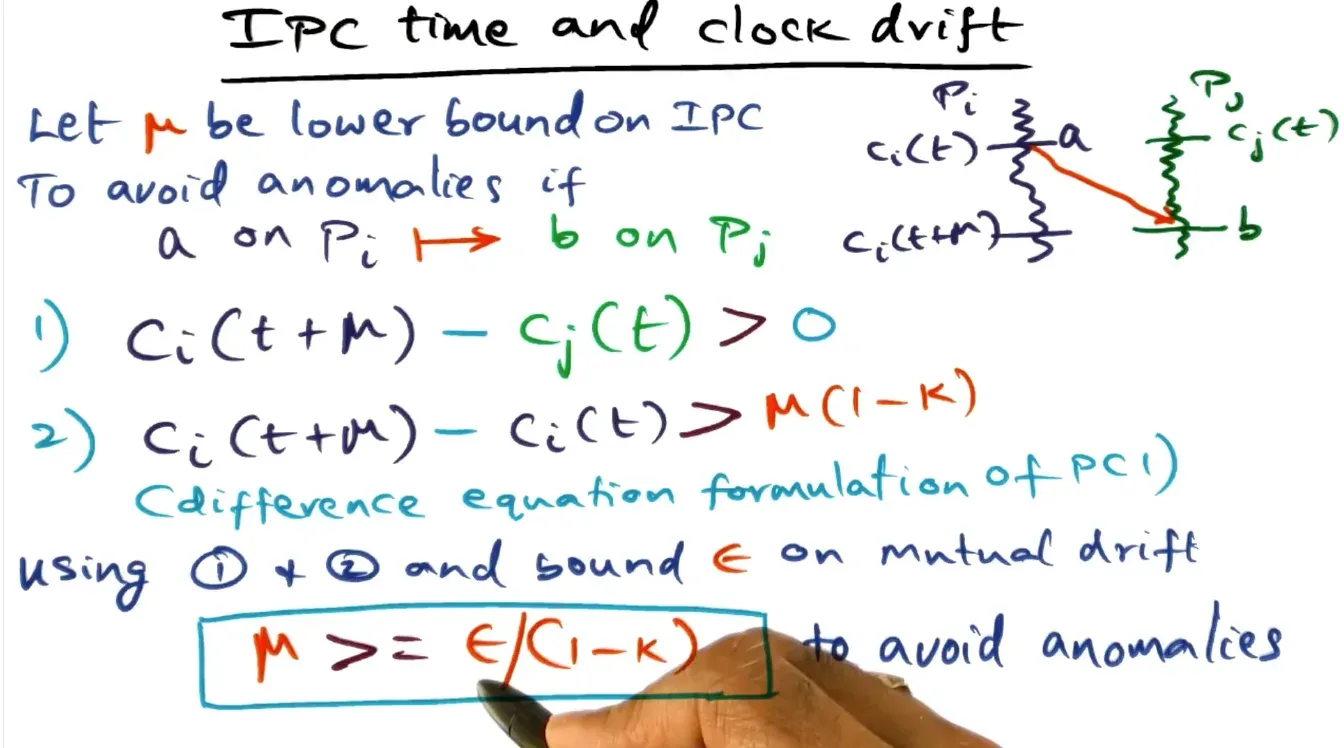 IPC time and clock drift
Let μ be lower bound on IPC
To avoid anomalies if
a on Pi ↦ b on Pj
Pi
Ci(t)
a
Ci(t+μ)
Pj
Cj(t)
b
1) Ci(t+μ) - Cj(t) > 0
2) Ci(t+μ) - Ci(t) > μ(1-K)
(difference equation formulation of PC1)
using ① + ② and bound ∈ on mutual drift
μ >= ∈/(1-K) to avoid anomalies